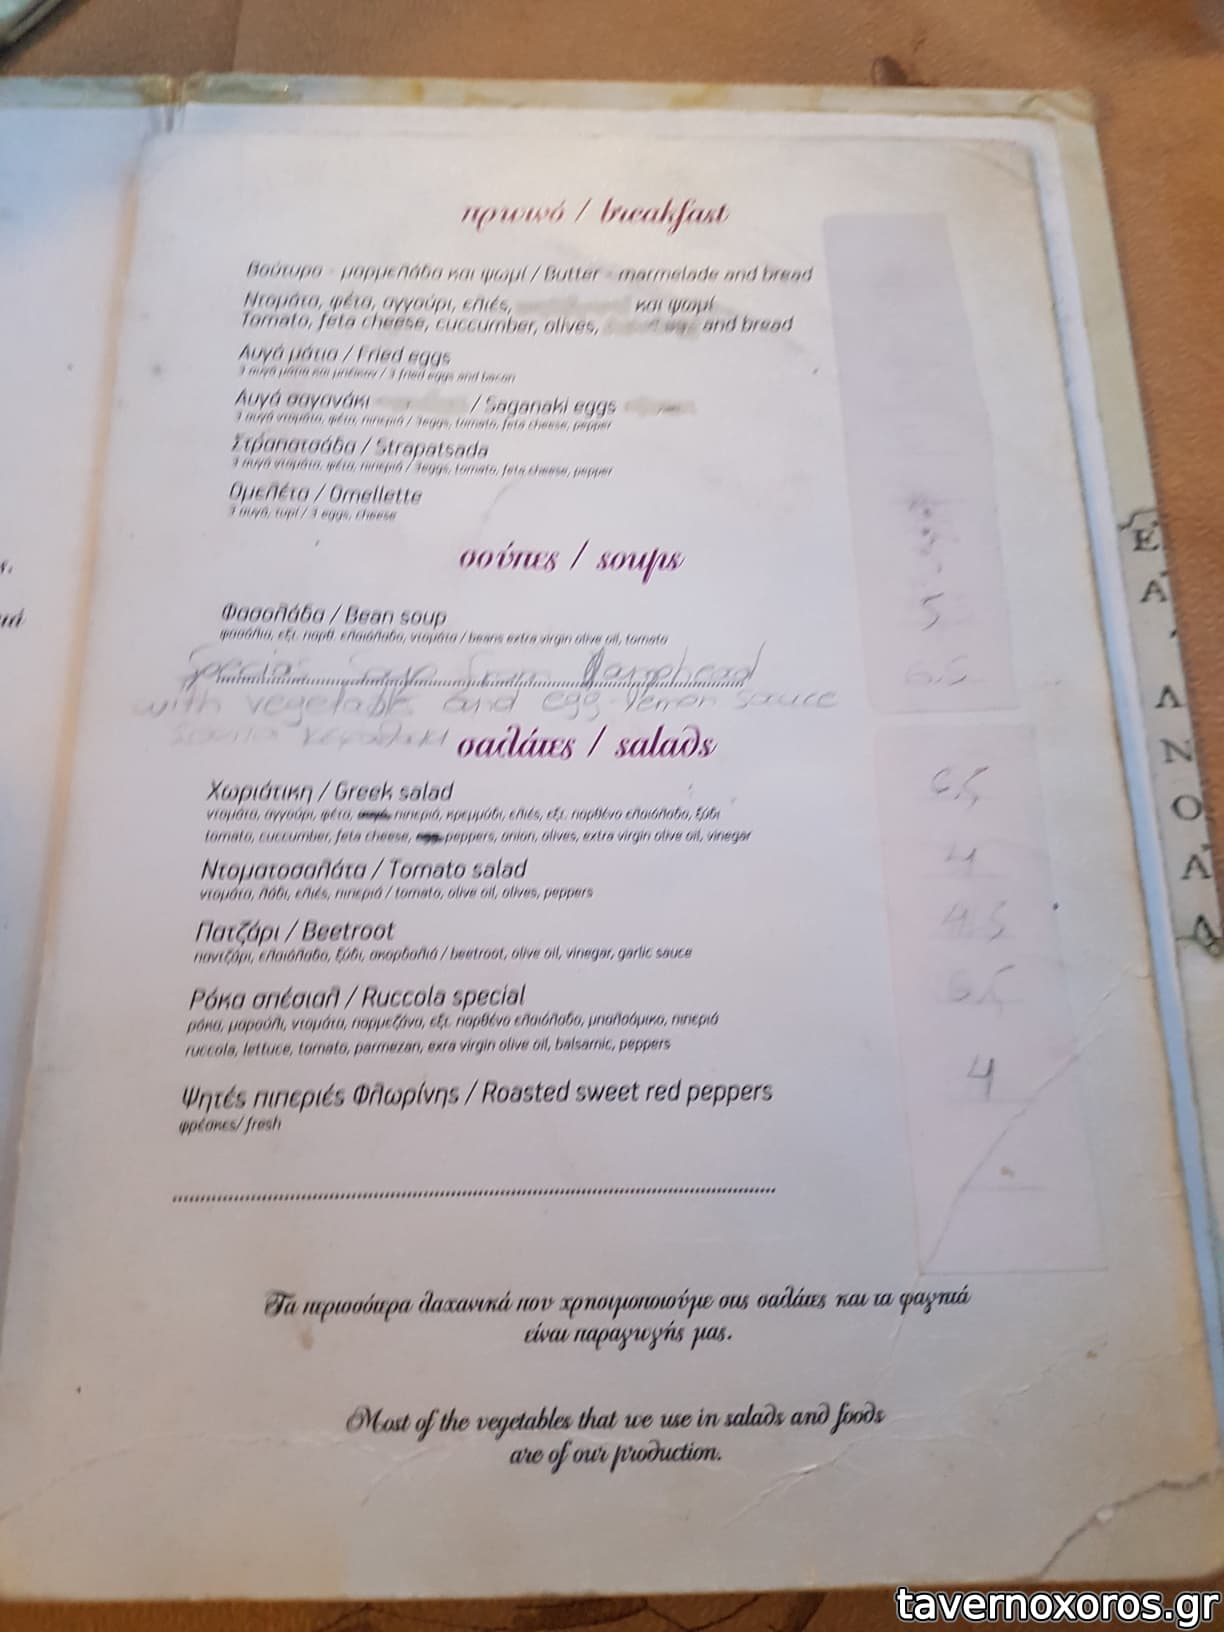 πρωινό / breakfast
Βούτυρο - μαρμελάδα και ψωμί / Butter - marmelade and bread
Ντομάτα, φέτα, αγγούρι, ελιές, και ψωμί
Tomato, feta cheese, cuccumber, olives, and bread
Αυγά μάτια / Fried eggs
3 αυγά μάτια και μπέικον / 3 fried eggs and bacon
Αυγά σαγανάκι / Saganaki eggs
3 αυγά ντομάτα, φέτα, πιπεριά / 3eggs, tomato, feta cheese, pepper
Στραπατσάδα / Strapatsada
3 αυγά ντομάτα, φέτα, πιπεριά / 3eggs, tomato, feta cheese, pepper
Ομελέτα / Omellette
3 αυγά, τυρί / 3 eggs, cheese
σούπες / soups
Φασολάδα / Bean soup 5
φασόλια, εξτ. παρθ. ελαιόλαδο, ντομάτα / beans extra virgin olive oil, tomato
Special Soup from 6,5
with vegetable and egg-lemon sauce
σαλάτες / salads
Χωριάτικη / Greek salad 6,5
ντομάτα, αγγούρι, φέτα, πιπεριά, κρεμμύδι, ελιές, εξτ. παρθένο ελαιόλαδο, ξύδι
tomato, cuccumber, feta cheese, egg, peppers, onion, olives, extra virgin olive oil, vinegar
Ντοματοσαλάτα / Tomato salad 4
ντομάτα, λάδι, ελιές, πιπεριά / tomato, olive oil, olives, peppers
Πατζάρι / Beetroot 4,5
παντζάρι, ελαιόλαδο, ξύδι, σκορδαλιά / beetroot, olive oil, vinegar, garlic sauce
Ρόκα σπέσιαλ / Ruccola special
ρόκα, μαρούλι, ντομάτα, παρμεζάνα, εξτ. παρθένο ελαιόλαδο, μπαλσάμικο, πιπεριά
ruccola, lettuce, tomato, parmezan, exra virgin olive oil, balsamic, peppers
Ψητές πιπεριές Φλωρίνης / Roasted sweet red peppers 4
φρέσκες/ fresh
Τα περισσότερα λαχανικά που χρησιμοποιούμε στις σαλάτες και τα φαγητά
είναι παραγωγής μας.
Most of the vegetables that we use in salads and foods
are of our production.
tavernoxoros.gr